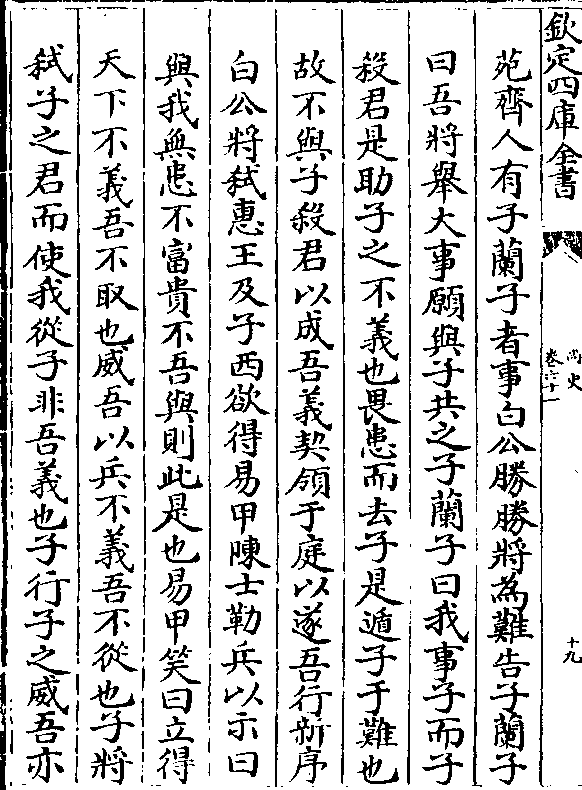 欽定四庫全書
尚史
卷六十一
十九
苑齊人有子蘭子者事白公勝勝將為難告子蘭子
曰吾將舉大事願與子共之子蘭子曰我事子而子
殺君是助子之不義也畏患而去子是遁子于難也
故不與子殺君以成吾義契領于庭以遂吾行新序
白公將弒惠王及子西欲得易甲陳士勒兵以示曰
與我無患不富貴不吾與則此是也易甲笑曰立得
天下不義吾不取也威吾以兵不義吾不從也子將
弒子之君而使我從子非吾義也子行子之威吾亦